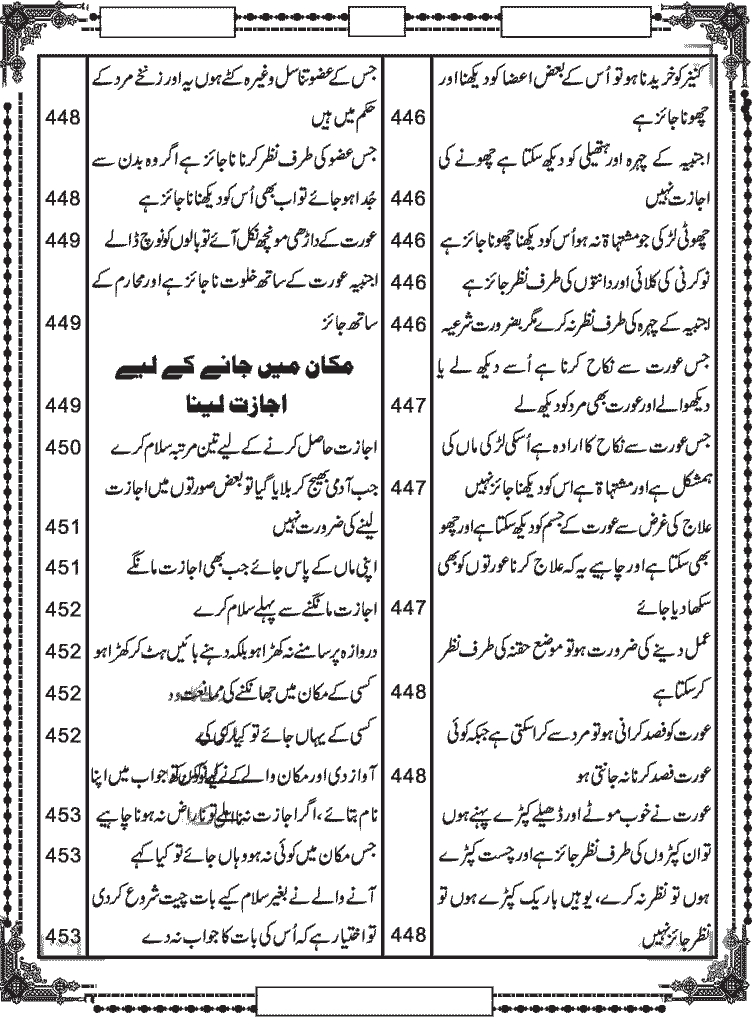 کنیز کو خریدنا ہو تو اُس کے بعض اعضا کو دیکھنا اور
چھونا جائز ہے 446
اجنبیہ کے چہرہ اور ہتھیلی کو دیکھ سکتا ہے چھونے کی
اجازت نہیں 446
چھوٹی لڑکی جو مشتہاۃ نہ ہو اُس کو دیکھنا چھونا جائز ہے 446
نوکرنی کی کلائی اور دانتوں کی طرف نظر جائز ہے 446
اجنبیہ کے چہرہ کی طرف نظر نہ کرے مگر بضرورت شرعیہ 446
جس عورت سے نکاح کرنا ہے اُسے دیکھ لے یا
دیکھوالے اور عورت بھی مرد کو دیکھ لے 447
جس عورت سے نکاح کا ارادہ ہے اُسکی لڑکی ماں کی
ہمشکل ہے اور مشتہاۃ ہے اس کو دیکھنا جائز نہیں 447
علاج کی غرض سے عورت کے جسم کو دیکھ سکتا ہے اور چھو
بھی سکتا ہے اور چاہیے یہ کہ علاج کرنا عورتوں کو بھی
سکھا دیا جائے 447
عمل دینے کی ضرورت ہو تو موضع حقنہ کی طرف نظر
کر سکتا ہے 448
عورت کو فصد کرانی ہو تو مرد سے کرا سکتی ہے جبکہ کوئی
عورت فصد کرنا نہ جانتی ہو 448
عورت نے خوب موٹے اور ڈھیلے کپڑے پہنے ہوں
تو ان کپڑوں کی طرف نظر جائز ہے اور چست کپڑے
ہوں تو نظر نہ کرے، یوہیں باریک کپڑے ہوں تو
نظر جائز نہیں 448
جس کے عضو تناسل وغیرہ کٹے ہوں یہ اور زنخے مرد کے
حکم میں ہیں 448
جس عضو کی طرف نظر کرنا ناجائز ہے اگر وہ بدن سے
جُدا ہو جائے تو اب بھی اُس کو دیکھنا ناجائز ہے 448
عورت کے داڑھی مونچھ نکل آئے تو بالوں کو نوچ ڈالے 449
اجنبیہ عورت کے ساتھ خلوت ناجائز ہے اور محارم کے
ساتھ جائز 449
مکان میں جانے کے لیے
اجازت لینا 449
اجازت حاصل کرنے کے لیے تین مرتبہ سلام کرے 450
جب آدمی بھیج کر بلایا گیا تو بعض صورتوں میں اجازت
لینے کی ضرورت نہیں 451
اپنی ماں کے پاس جائے جب بھی اجازت مانگے 451
اجازت مانگنے سے پہلے سلام کرے 452
دروازہ پر سامنے نہ کھڑا ہو بلکہ دہنے بائیں ہٹ کر کھڑا ہو 452
کسی کے مکان میں جھانکنے کی ممانعت 452
کسی کے یہاں جائے تو 452
آواز دی اور مکان والے نے جواب میں اپنا
نام بتائے، اگر اجازت نہ ملے تو ناراض نہ ہونا چاہیے 453
جس مکان میں کوئی نہ ہو وہاں جائے تو کیا کہے 453
آنے والے نے بغیر سلام کیے بات چیت شروع کردی
تو اختیار ہے کہ اُس کی بات کا جواب نہ دے 453